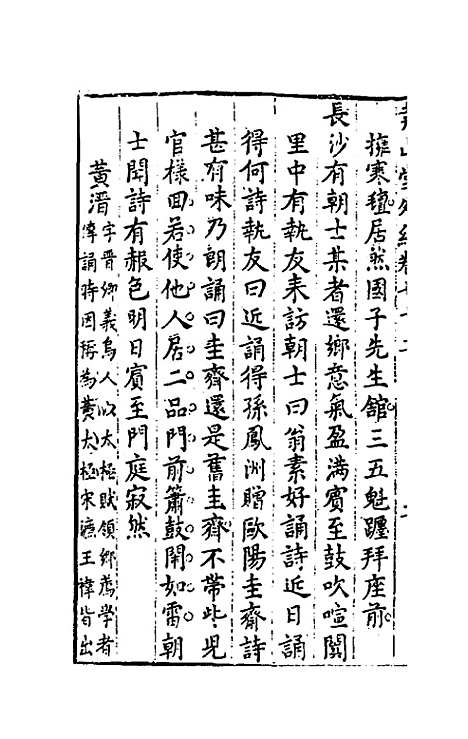 擁寒氊居然國子先生館三五魁躔拜座前
長沙有朝士某者還鄉意氣盈滿賓至鼓吹喧闐
里中有執友来訪朝士曰翁素好誦詩近日誦
得何詩執友曰近誦得孫鳳洲贈歐陽圭齋詩
甚有味乃朗誦曰圭齋還是舊圭齋不帶些兒
官樣回若使他人居二品門前簫鼓鬧如雷朝
士聞詩有赧色明日賓至門庭寂然
黄溍字晋卿義烏人以太極賦領鄉薦學者
傳誦時因稱為黄太極宋濂王禕皆出